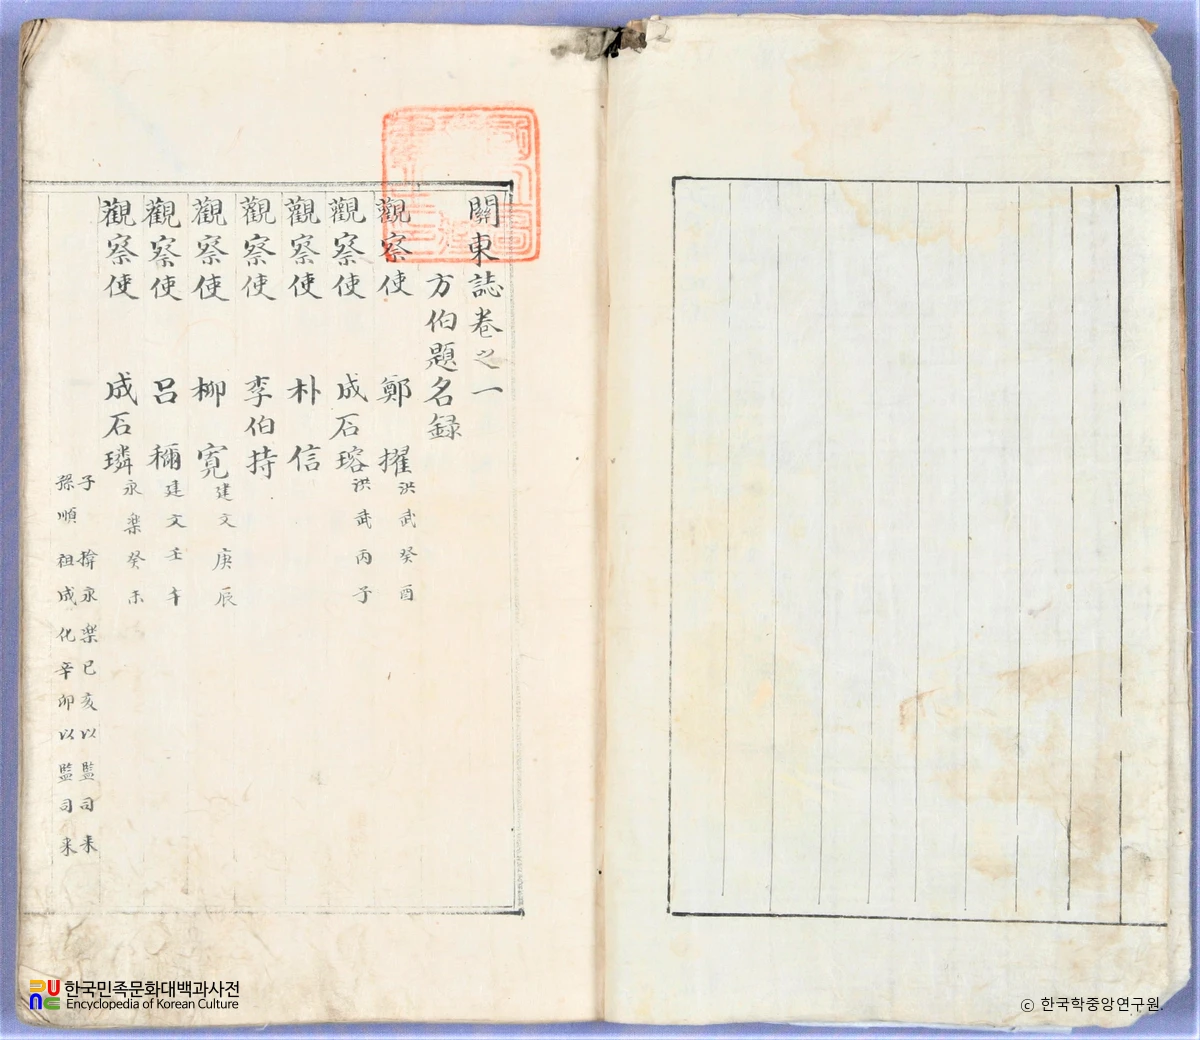 關東誌卷之一
方伯題名錄
觀察使 鄭擢 洪武癸酉
觀察使 成石瑢 洪武丙子
觀察使 朴信
觀察使 李伯持
觀察使 柳寬 建文庚辰
觀察使 呂稱 建文壬午
觀察使 成石璘 永樂癸未
子揜永樂已亥以監司来
孫順祖成化辛卯以監司来
한국민족문화대백과사전
Encyclopedia of Korean Culture
ⓒ 한국학중앙연구원.